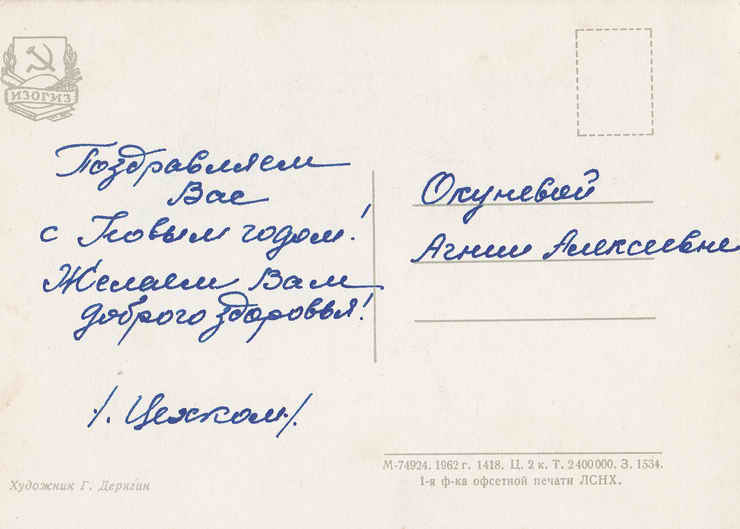 ИЗОГИЗ
Поздравляем
Вас
с Новым годом!
Желаем Вам
доброго здоровья!
/. Цехком./
Окуневой
Агнии Алексеевне
Художник Г. Дерягин
М-74924. 1962 г. 1418. Ц. 2 к. Т. 2400000. З. 1534.
1-я ф-ка офсетной печати ЛСНХ.